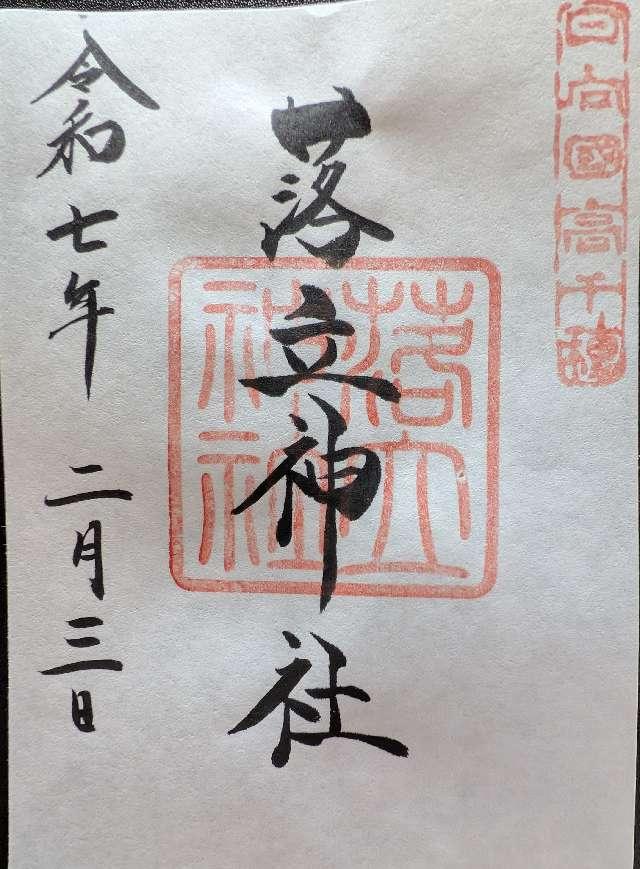 日向國高千穂
落立神社
落立神社
令和七年二月三日